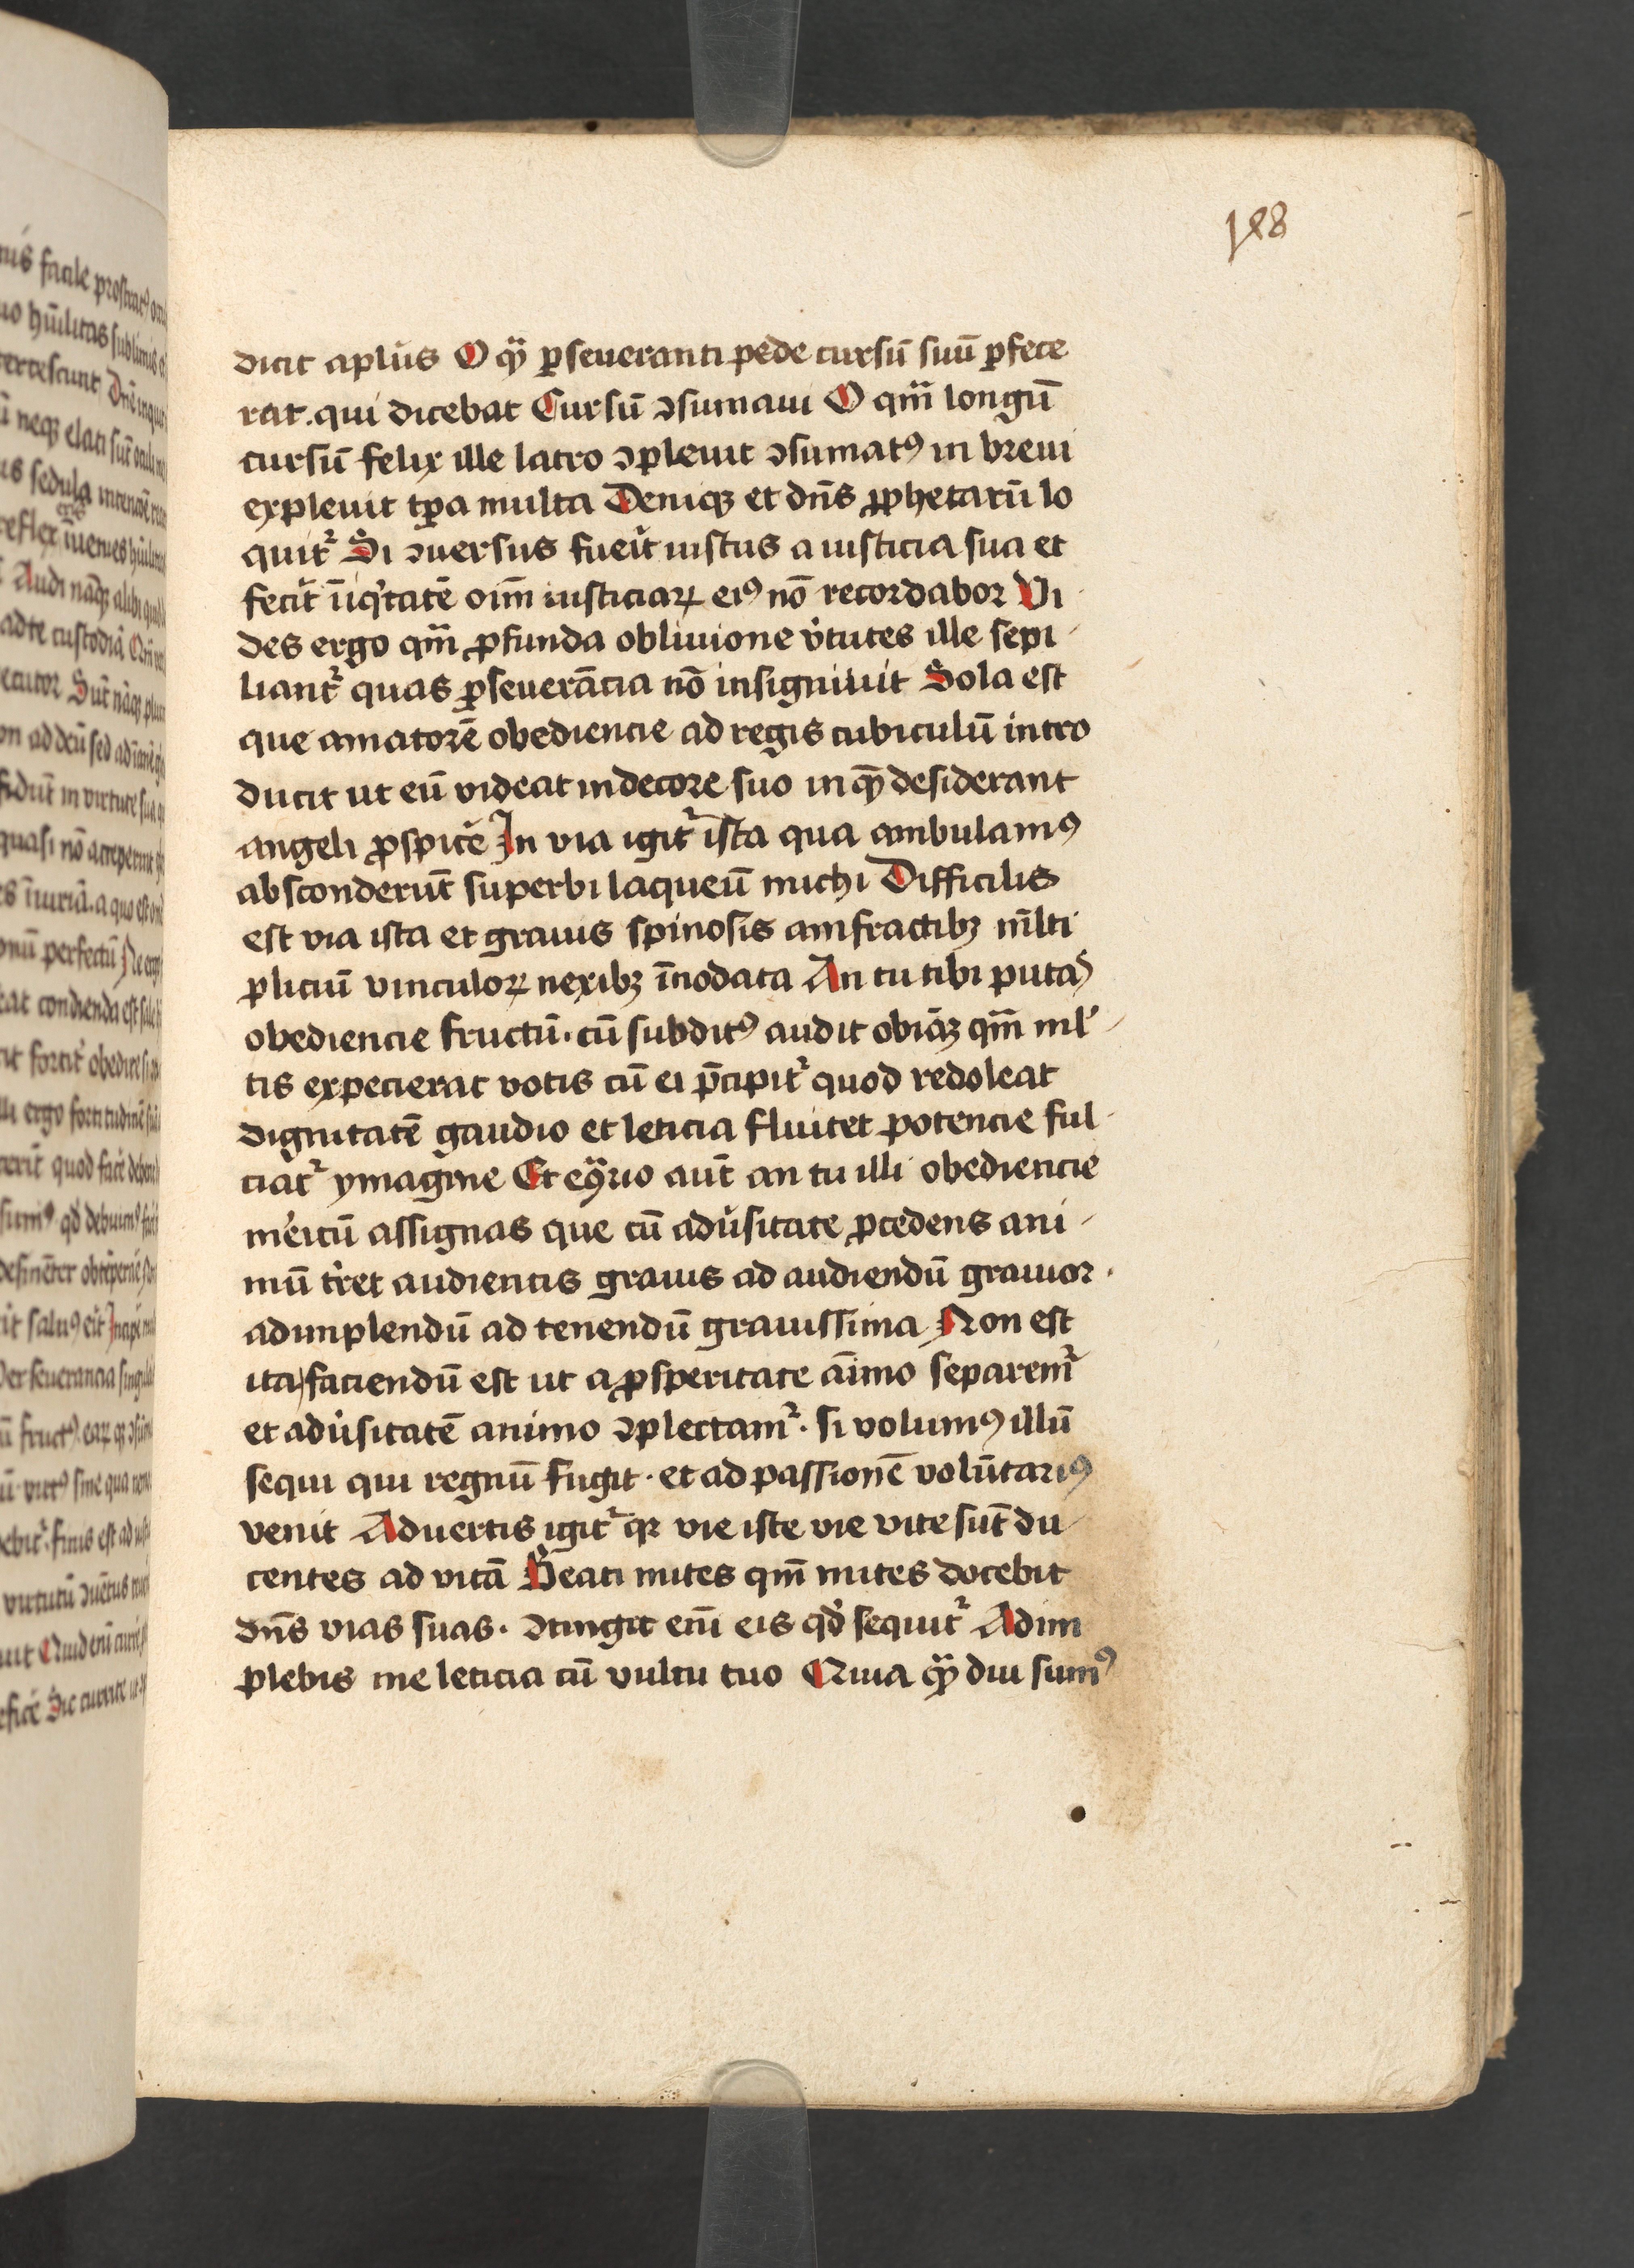 188
dicit aplūs O qͣꝫ ꝑseueranti pede cursū suū ꝑfece
rat. qui dicebat Cursū ꝯsumaui O qm̄ longū
cursū felix ille latro ꝯpleuit ꝯsumatꝰ in breui
expleuit tꝑa multa Deniqꝫ et dn̄s ꝓphetarū lo
quit᷑ Si ꝯuersus fuei᷑t iustus a iusticia sua et
feci᷑t īiqͥtatē oīm iusticiaꝝ eiꝰ nō recordabor Vi
des ergo qm̄ ꝓfunda obliuione v᷑tutes ille sepi
liant᷑ quas ꝑseuerācia nō insigniuit Sola est
que amatorē obediencie ad regis cubiculū intro
ducit ut eū videat in decore suo in qͦꝫ desiderant
angeli ꝓspicē In via igit᷑ ista qua ambulamꝰ
absconderūt superbi laqueū michi Difficilis
est via ista et grauis spinosis amfractibꝫ ml̄ti
pliciū vinculoꝝ nexibꝫ īnodata An tu tibi putas
obediencie fructū. cū subditꝰ audit obiāꝫ qm̄ ml᷑
tis expecierat votis cū ei p̄cipit᷑ quod redoleat
dignitatē gaudio et leticia fluitet potencie ful
ciat᷑ ymagine Et eqͣrio aūt an tu illi obediencie
mei᷑tū assignas que cū adu᷑sitate ꝓcedens ani
mū t᷑ret audientis grauis ad audiendū grauior
adimplendū ad tenendū grauissima Non est
ita faciendū est ut a ꝓsperitate āimo separem᷑
et adu᷑sitatē animo ꝯplectam᷑. si volumꝰ illū
sequi qui regnū fugit. et ad passionē volūtariꝰ
venit Aduertis igit᷑ qꝛ vie iste vie vite sūt du
centes ad vitā Beati mites qm̄ mites docebit
dn̄s vias suas. ꝯtingit enī eis qd̓ sequit᷑ Adim
plebis me leticia cū vultu tuo Quia qͣꝫ diu sumꝰ